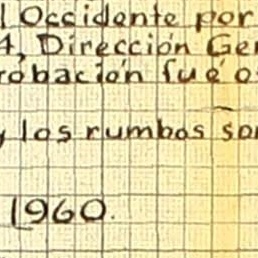 l Occidente por
4, Dirección Gen
robación fué o
y los rumbos son
1960.